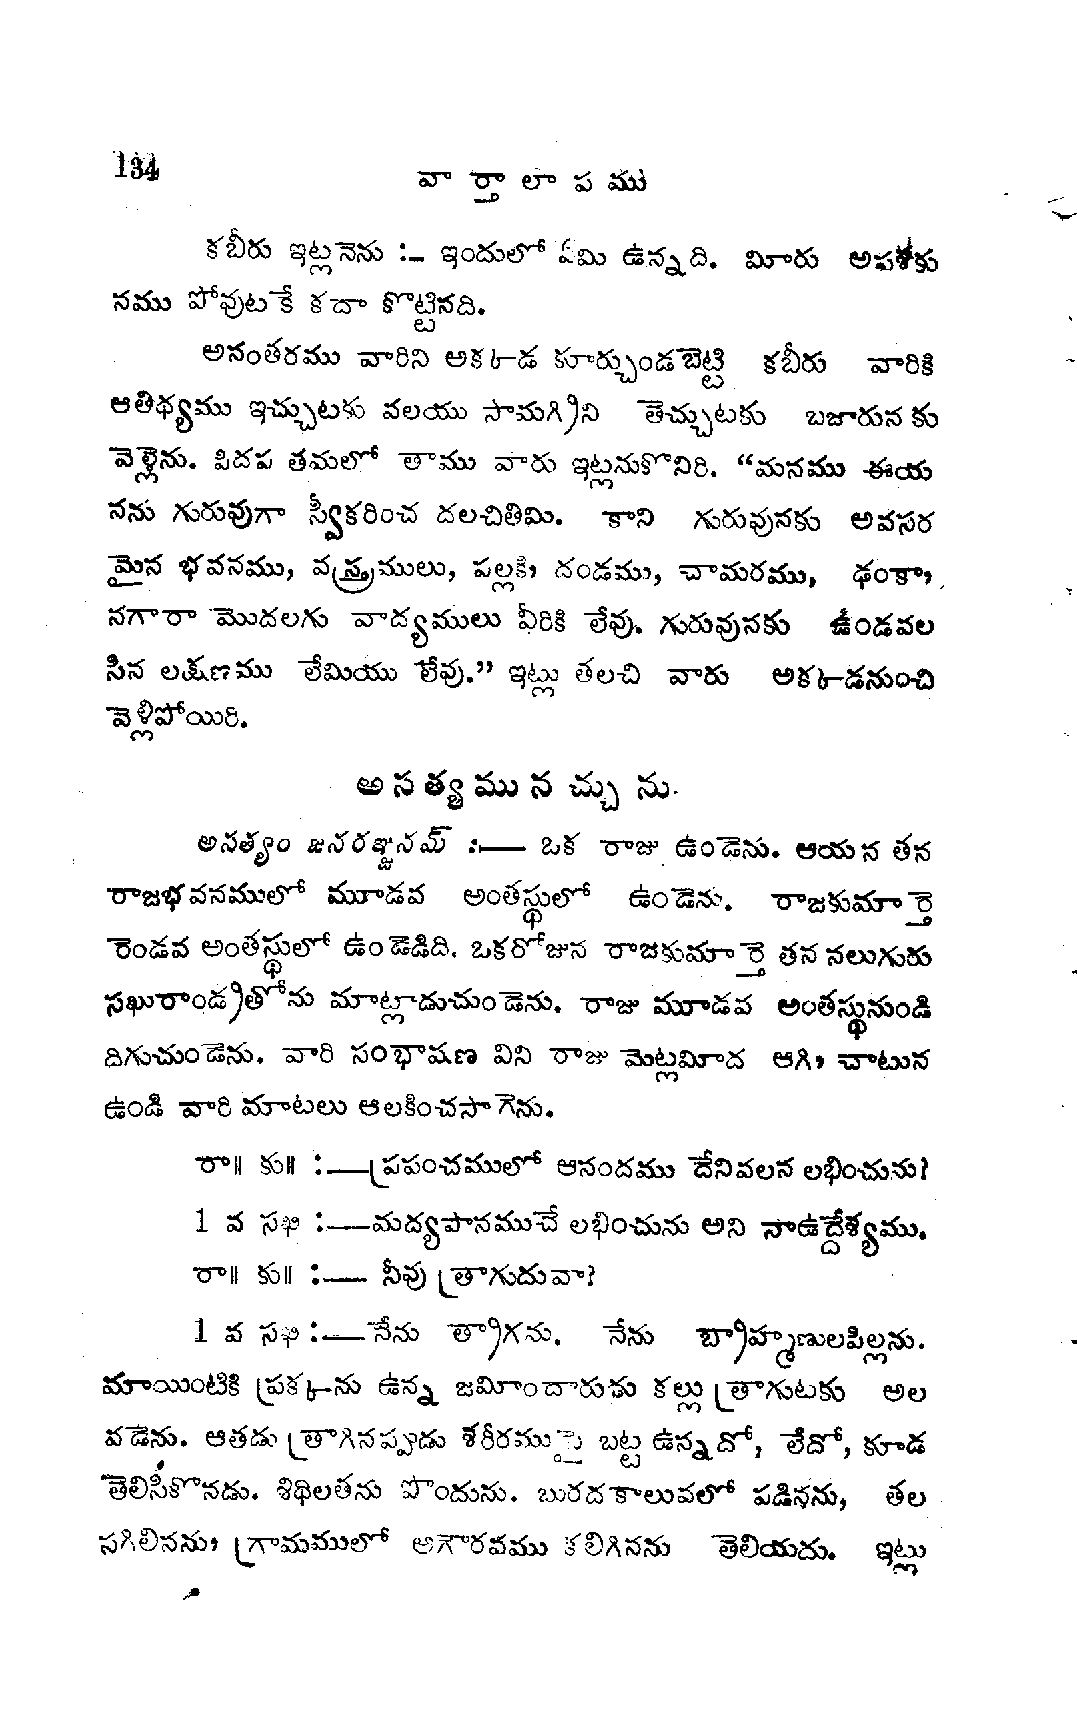 134
వా ర్తా లా ప ము
కబీరు ఇట్లనెను :— ఇందులో ఏమి ఉన్నది. మీరు అపశకు
నము పోవుటకే కదా కొట్టినది.
అనంతరము వారిని అక్కడ కూర్చుండబెట్టి కబీరు వారికి
ఆతిథ్యము ఇచ్చుటకు వలయు సామగ్రిని తెచ్చుటకు బజారునకు
వెళ్లెను. పిదప తమలో తాము వారు ఇట్లనుకొనిరి. “మనము ఈయ
నను గురువుగా స్వీకరించ దలచితిమి. కాని గురువునకు అవసర
మైన భవనము, వస్త్రములు, పల్లకి, దండము, చామరము, ఢంకా,
నగారా మొదలగు వాద్యములు వీరికి లేవు. గురువునకు ఉండవల
సిన లక్షణము లేమియు లేవు.” ఇట్లు తలచి వారు అక్కడనుంచి
వెళ్లిపోయిరి.
అ స త్య ము న చ్చు ను.
అసత్యం జనరఞ్జనమ్ :— ఒక రాజు ఉండెను. ఆయన తన
రాజభవనములో మూడవ అంతస్థులో ఉండెను. రాజకుమార్తె
రెండవ అంతస్థులో ఉండెడిది. ఒకరోజున రాజకుమార్తె తన నలుగురు
సఖురాండ్రితోను మాట్లాడుచుండెను. రాజు మూడవ అంతస్థునుండి
దిగుచుండెను. వారి సంభాషణ విని రాజు మెట్లమీద ఆగి, చాటున
ఉండి వారి మాటలు ఆలకించసాగెను.
రా॥ కు॥ :—ప్రపంచములో ఆనందము దేనివలన లభించును?
1 వ సఖి :—మద్యపానముచే లభించును అని నాఉద్దేశ్యము.
రా॥ కు॥ :— నీవు త్రాగుదువా?
1 వ సఖి :—నేను త్రాగను. నేను బ్రాహ్మణులపిల్లను.
మాయింటికి ప్రక్కను ఉన్న జమీందారుడు కల్లు త్రాగుటకు అల
వడెను. ఆతడు త్రాగినప్పుడు శరీరముపై బట్ట ఉన్నదో, లేదో, కూడ
తెలిసికొనడు. శిథిలతను పొందును. బురదకాలువలో పడినను, తల
పగిలినను, గ్రామములో అగౌరవము కలిగినను తెలియదు. ఇట్లు